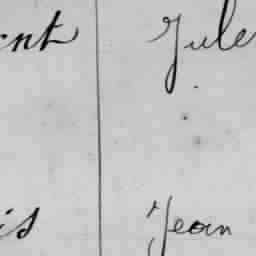 ent Jule
is Jean